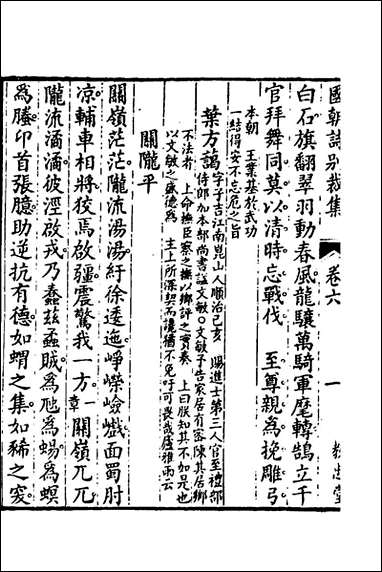 國朝詩別裁集 卷六 一 教忠堂
白石旗翻翠羽動春風龍驤萬騎軍麾轉鵠立千
官拜舞同莫以清時忘戰伐 至尊親為挽雕弓
本朝 王業基於武功
一結得安不忘危之旨
葉方藹字子吉江南崑山人順治己亥 賜進士第三人官至禮部
侍郎加本部尚書謚文敏○文敏予告家居有客陳其居鄉
不法者 上命撫臣察之撫以鄉評之實奏 上曰朕知其不如是也
以文敏之盛德為 主上所深契而讒猶不免吁可畏哉盧雅雨云
關隴平
關嶺茫茫隴流湯湯紆徐逶迤崢嶸嶮巇面蜀肘
凉輔車相將狡焉啟疆震驚我一方一章關嶺兀兀
隴流潏潏彼淫啟戎乃蠢兹蟊賊為虺為蜴為螟
為螣卬首張臆助逆抗有德如蝟之集如豨之突